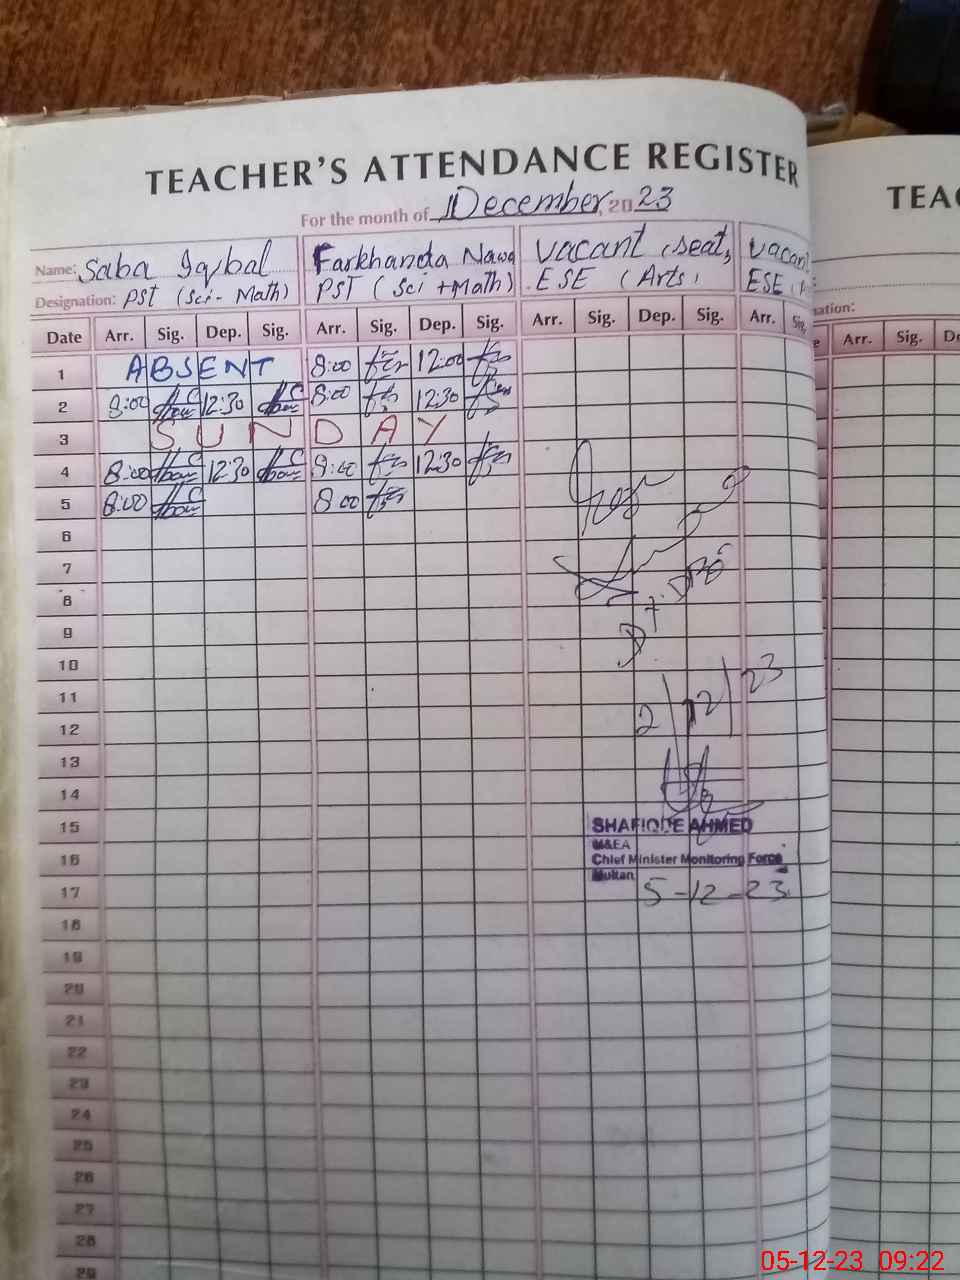 TEACHER'S ATTENDANCE REGISTER
TEAC
For the month of December, 2023
Name: Saba Iqbal Farkhanda Nawa vacant seat, vacant
Designation: PST (Sci - Math) PST (Sci + Math) ESE (Arts) ESE
nation:
Date Arr. Sig. Dep. Sig. Arr. Sig. Dep. Sig. Arr. Sig. Dep. Sig. Arr. Sig. e Arr. Sig. De
1 ABSENT 8:00 12:00
2 8:00 12:30 8:00 12:30
3 SUNDAY
4 8:00 12:30 8:00 12:30
5 8:00 8:00
6
7
8
9
10
11
12
2/12/23
13
14
15
SHAFIQUE AHMED
M&EA
16
Chief Minister Monitoring Force
Multan
17
5-12-23
18
19
20
21
22
23
24
25
26
27
28
29
05-12-23 09:22